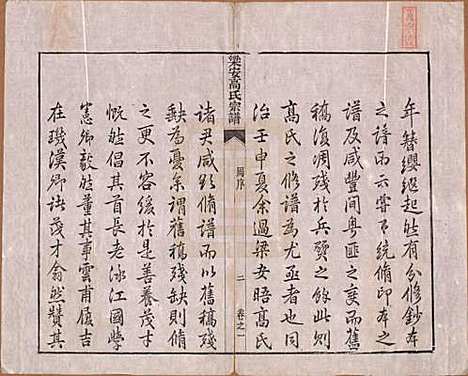 年簪纓繼起雖有分修鈔本
之譜而六雲下統修印本之
譜及咸豐間粵匪之變而舊
稿復凋殘於兵贇之餘此則
高氏之修譜為尤亟者也同
治壬申夏余過梁安晤高氏
梁安高氏宗譜
周序
二
卷之一
諸君咸欲脩譜而以舊稿殘
缺為憂余謂舊稿殘缺則脩
之更不容緩於是善養茂才
慨然倡其首長老泳江國學
憲卿毅然董其事雲甫履吉
在璣漢卿詠茂才翕然贊其